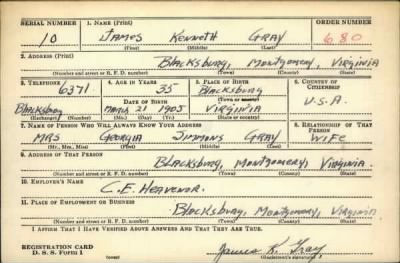 SERIAL NUMBER 1. NAME (Print) ORDER NUMBER
10 James Kenneth Gray 680
(First) (Middle) (Last)
2. ADDRESS (Print)
Blacksburg, Montgomery, Virginia
(Number and street or R. F. D. number) (Town) (County) (State)
3. TELEPHONE 4. AGE IN YEARS 5. PLACE OF BIRTH 6. COUNTRY OF CITIZENSHIP
6371 35 Blacksburg
DATE OF BIRTH (Town or county) U.S.A.
Blacksburg March 21 1905 Virginia
(Exchange) (Number) (Mo.) (Day) (Yr.) (State or country)
7. NAME OF PERSON WHO WILL ALWAYS KNOW YOUR ADDRESS 8. RELATIONSHIP OF THAT PERSON
Mrs Georgia Simmons Gray Wife
(Mr., Mrs., Miss) (First) (Middle) (Last)
9. ADDRESS OF THAT PERSON
Blacksburg, Montgomery, Virginia.
(Number and street or R. F. D. number) (Town) (County) (State)
10. EMPLOYER'S NAME
C. E. Heavener.
11. PLACE OF EMPLOYMENT OR BUSINESS
Blacksburg, Montgomery, Virginia.
(Number and street or R. F. D. number) (Town) (County) (State)
I AFFIRM THAT I HAVE VERIFIED ABOVE ANSWERS AND THAT THEY ARE TRUE.
REGISTRATION CARD
D. S. S. Form 1 James K. Gray
(Registrant's signature)